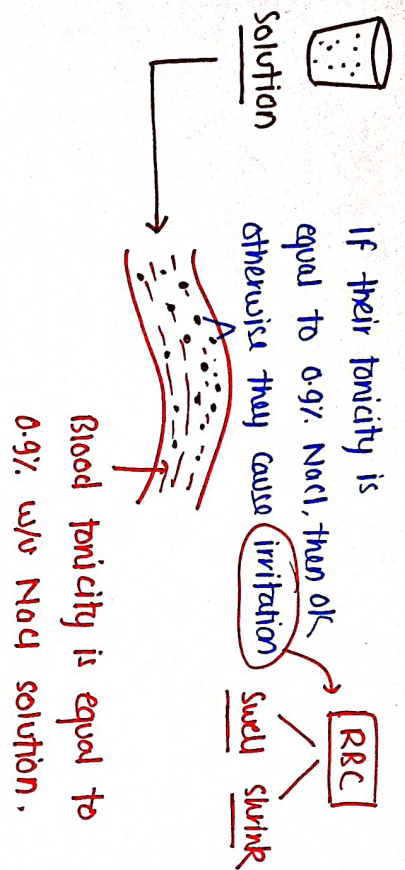 Solution
If their tonicity is
equal to 0.9% NaCl, then ok
otherwise they cause irritation
RBC
Swell shrink
Blood tonicity is equal to
0.9% w/v NaCl solution.